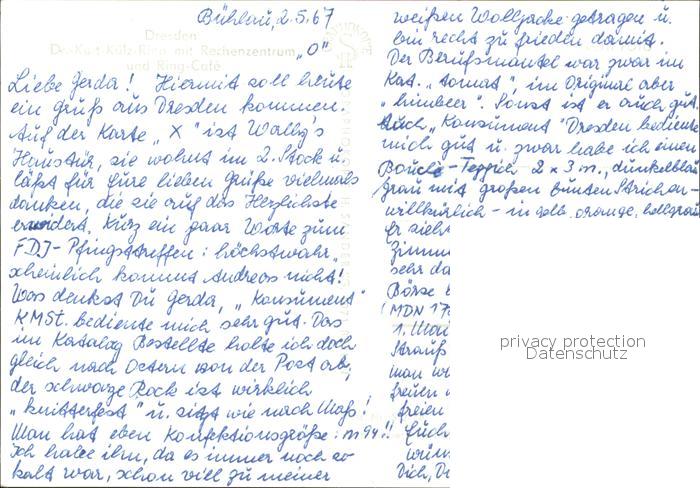 Bühlau, 2.5.67
Dresden
Dr.-Kurt-Külz-Ring mit Rechenzentrum „O"
und Ring-Café
Liebe Gerda! Hiermit soll heute
ein Gruß aus Dresden kommen.
Auf der Karte „X" ist Wally's
Haustür, sie wohnt im 2. Stock u.
läßt für Eure lieben Grüße vielmals
danken, die sie auf das Herzlichste
erwidert. Kurz ein paar Worte zum
FDJ-Pfingsttreffen: höchstwahr-
scheinlich kommt Andreas nicht!
Was denkst Du Gerda, „Konsument"
KMSt. bediente mich sehr gut. Das
im Katalog Bestellte holte ich doch
gleich nach Ostern von der Post ab,
der schwarze Rock ist wirklich
„knitterfest" u. sitzt wie nach Maß!
Man hat eben Konfektionsgröße: m94!!
Ich habe ihn, da es immer noch so
kalt war, schon viel zu meiner
weißen Wolljacke getragen u.
bin recht zufrieden damit.
Der Berufsmantel war zwar im
Kat. „tomat" im Original aber
„himbeer". Sonst ist er auch gut.
Auch „Konsument" Dresden bediente
mich gut u. zwar habe ich einen
Bouclé-Teppich 2 x 3 m, dunkelblau
grau mit großen bunten Strichen -
willkürlich - in gelb, orange, hellgrau
Er sieht
Zimm
sehr da
Börse
(MDN 17
1. Mai
Strauß
man w
freuen
freien
Euch
wün
Dich, D
privacy protection
Datenschutz